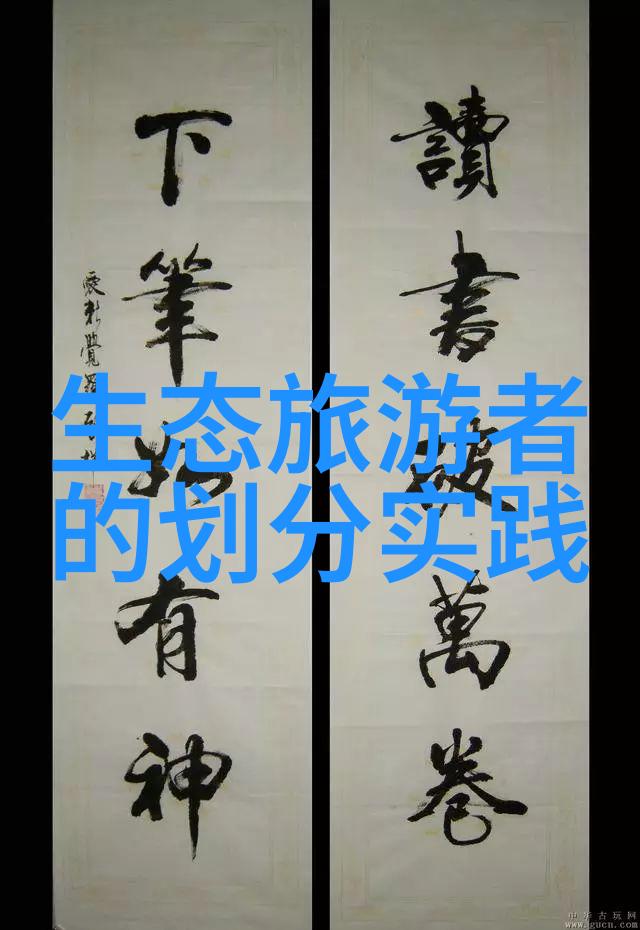 生态旅游者
的划分实践
讀書破萬卷
下筆如有神
愛新覺羅
中华古玩网
www.gucn.com